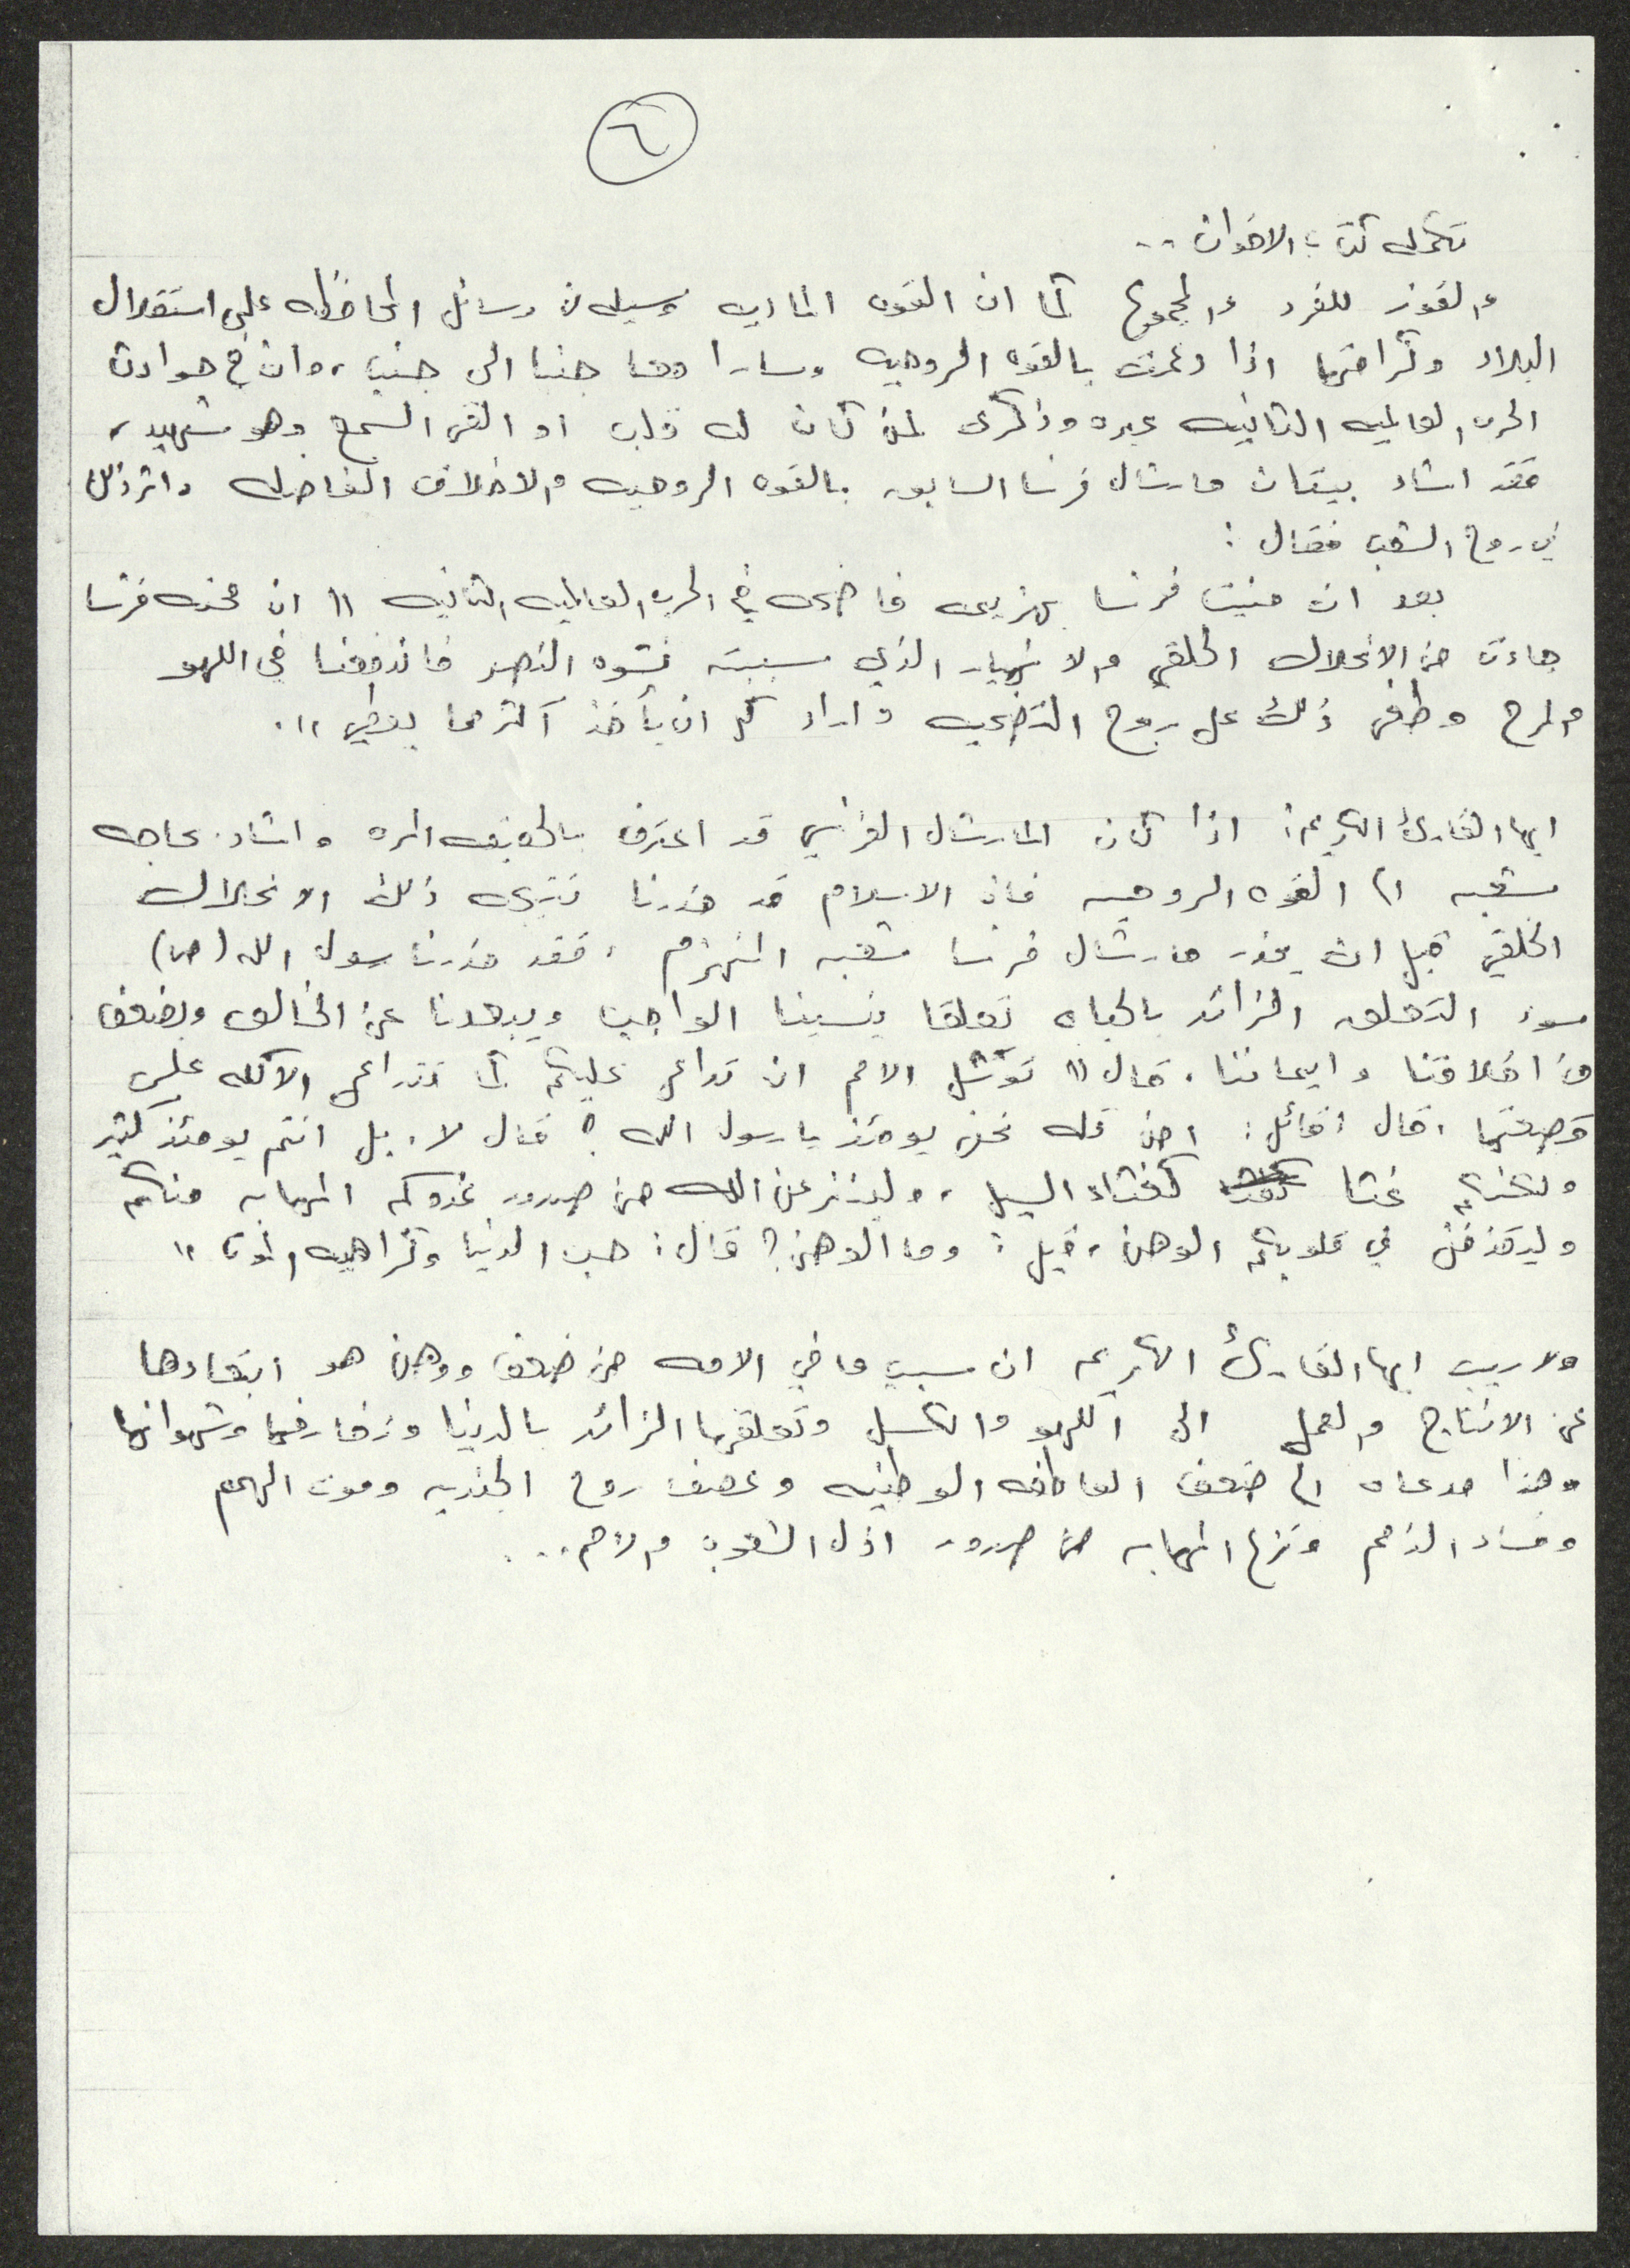 ٦
تكمله كتاب الاخوان ..
والفوز للفرد والمجموع كما ان القوه الماديه وسيله من وسائل المحافظه على استقلال
البلاد وكرامتها اذا دعمت بالقوه الروحيه وسارا معا جنبا الى جنب، وان في حوادث
الحرب العالميه الثانيه عبره وذكرى لمن كان له قلب او القى السمع وهو شهيد،
فقد اشاد بيتان مارشال فرنسا السابق بالقوه الروحيه والاخلاق الفاضله واثر ذلك
في روح الشعب فقال :
بعد ان منيت فرنسا بهزيمه فاضحه في الحرب العالميه الثانيه " ان محنه فرنسا
جاءت من الانحلال الخلقي والانهيار الذي سببته نشوه النصر فاندفعنا في اللهو
والمرح وطغى ذلك على روح التضحيه واراد كل ان يأخذ اكثر مما يعطي ".
ايها القارئ الكريم: اذا كان المارشال الفرنسي قد اعترف بالحقيقه المره واشاد بحاجه
شعبه الى القوه الروحيه فان الاسلام قد حذرنا نتيجه ذلك الانحلال
الخلقي قبل ان يحذر مارشال فرنسا شعبه المنهزم ، فقد حذرنا رسول الله (ص)
سوء التعلق الزائد بالحياه تعلقا ينسينا الواجب ويبعدنا عن الخالق ويضعف
من اخلاقنا وايماننا، قال " توشك الامم ان تداعى عليكم كما تتداعى الآكله على
قصعتها ، قال قائل: امن قله نحن يومئذ يا رسول الله ؟ قال لا، بل انتم يومئذ كثير
ولكنكم غثا كغثاء السيل ، ولينزعن الله من صدور عدوكم المهابه منكم
وليقذفن في قلوبكم الوهن ، قيل : وما الوهن؟ قال : حب الدنيا وكراهيه الموت "
ولا ريب ايها القارئ الكريم ان سبب ما في الامه من ضعف ووهن هو ابتعادها
عن الانتاج والعمل الى اللهو والكسل وتعلقها الزائد بالدنيا وزخارفها وشهواتها
وهذا مدعاه الى ضعف العاطفه الوطنيه وضعف روح الجنديه وموت الهمم
وفساد الذمم ونزع المهابه من صدور اذل الشعوب والامم...